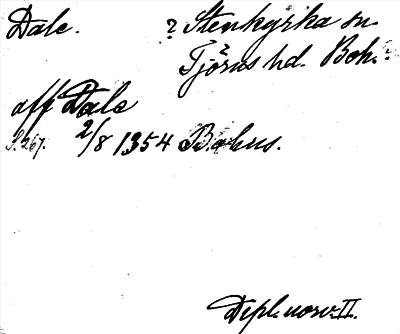 Dale. ? Stenkyrka sn.
Tjörns hd. Boh.?
off Dale
S. 267. 2/8 1354 Bahus.
Dipl. norv. II.